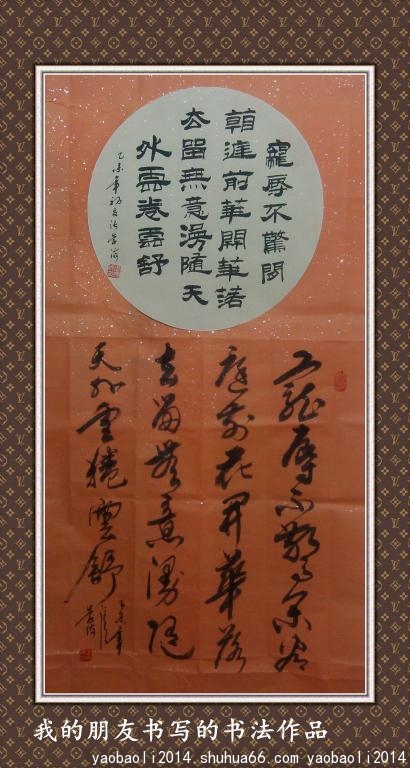 寵辱不驚閒
看庭前華開華落
去留無意漫隨天
外雲卷雲舒
乙未年
寵辱不驚閑看
庭前花開華落
去留無意漫隨
天外雲捲雲舒
乙未年
我的朋友书写的书法作品
yaobaoli2014.shuhua66.com yaobaoli2014